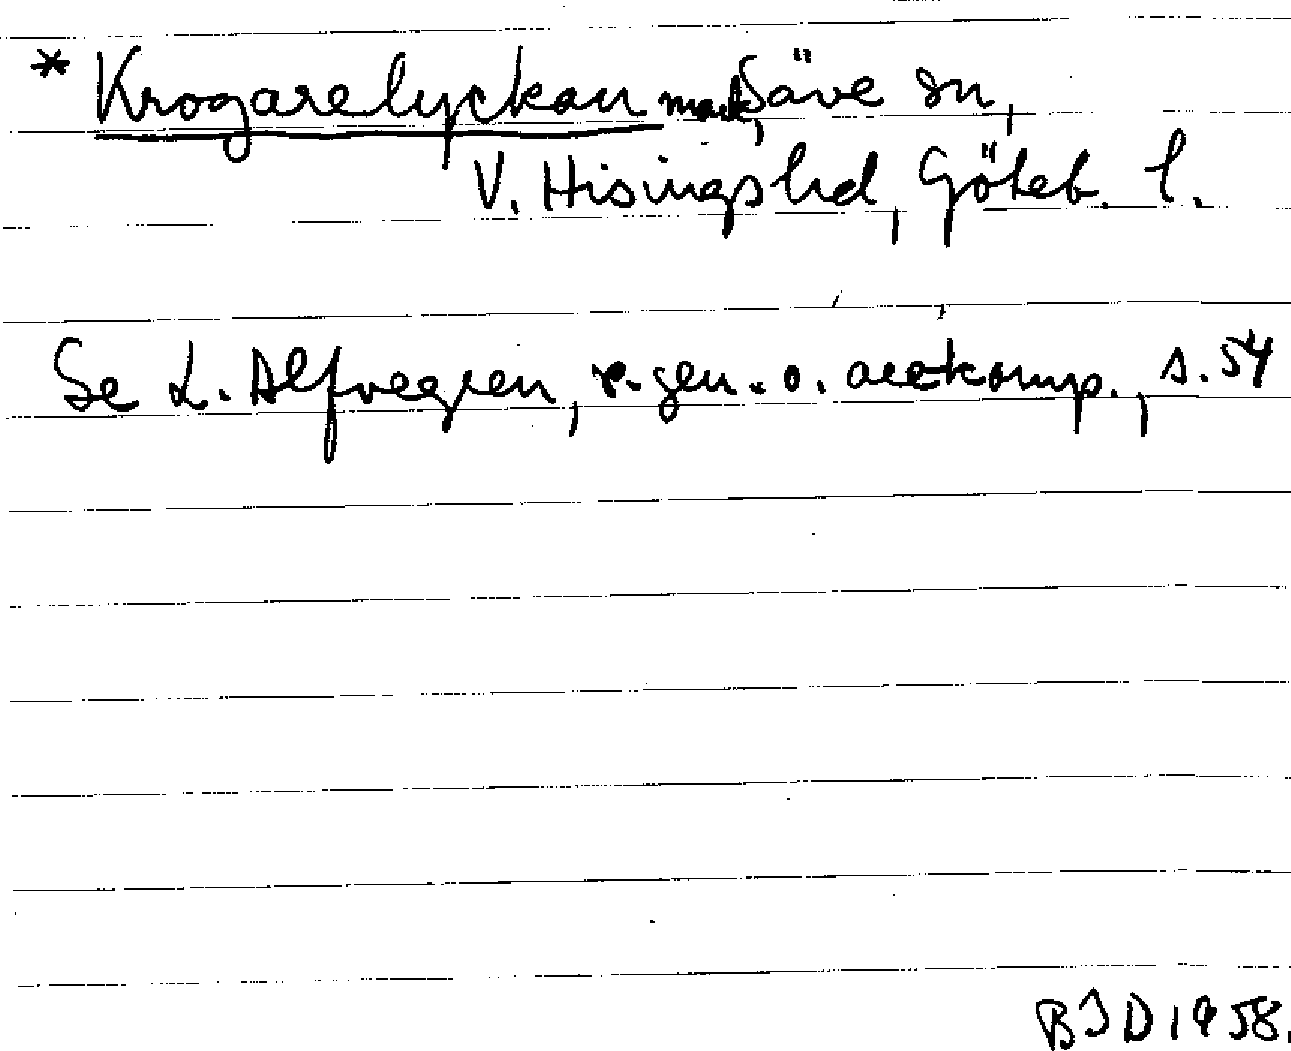 * Krogarelyckan mark, Säve sn,
V. Hisings hd, Göteb. l.
Se L. Alfvegren, r-gen. o. acc komp., s. 54
BJD 1958.